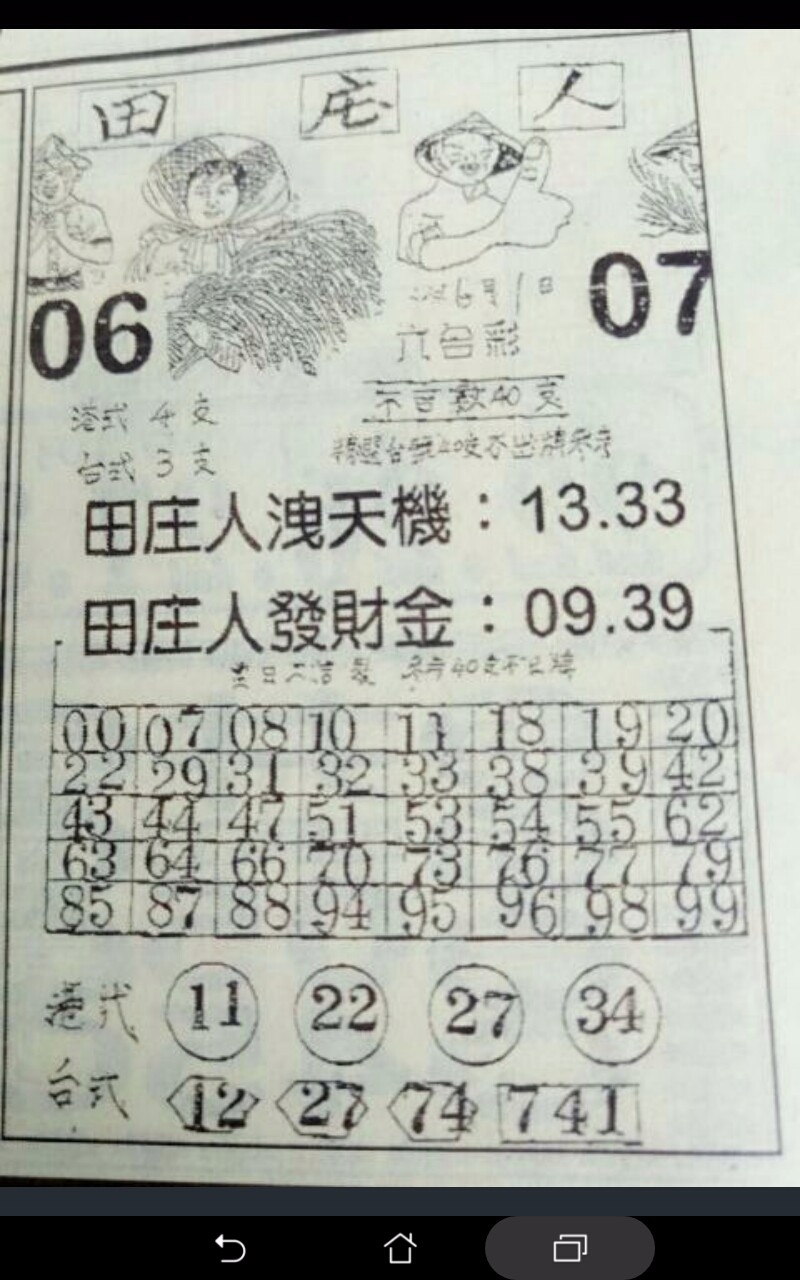 田 庄 人
06
07
6月1日
六合彩
港式 4支
不出數40支
台式 3支
田庄人洩天機：13.33
田庄人發財金：09.39
00 07 08 10 11 18 19 20
22 29 31 32 33 38 39 42
43 44 47 51 53 54 55 62
63 64 66 70 73 76 77 79
85 87 88 94 95 96 98 99
港式 11 22 27 34
台式 12 27 74 741